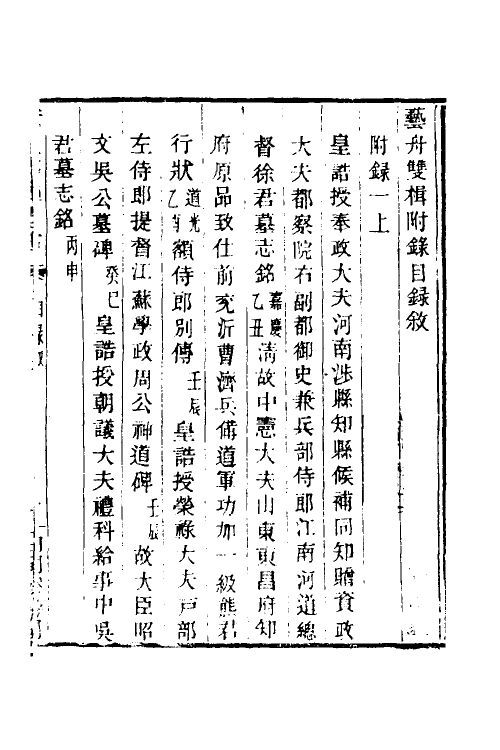 藝舟雙楫附錄目錄敘
附錄一上
皇誥授奉政大夫河南涉縣知縣候補同知贈資政
大夫都察院右副都御史兼兵部侍郎江南河道總
督徐君墓志銘嘉慶乙丑 淸故中憲大夫山東東昌府知
府原品致仕前兗沂曹濟兵備道軍功加一級熊君
行狀道光乙酉 額侍郎別傳壬辰 皇誥授榮祿大夫戸部
左侍郎提督江蘇學政周公神道碑壬辰 故大臣昭
文吳公墓碑癸巳 皇誥授朝議大夫禮科給事中吳
君墓志銘丙申